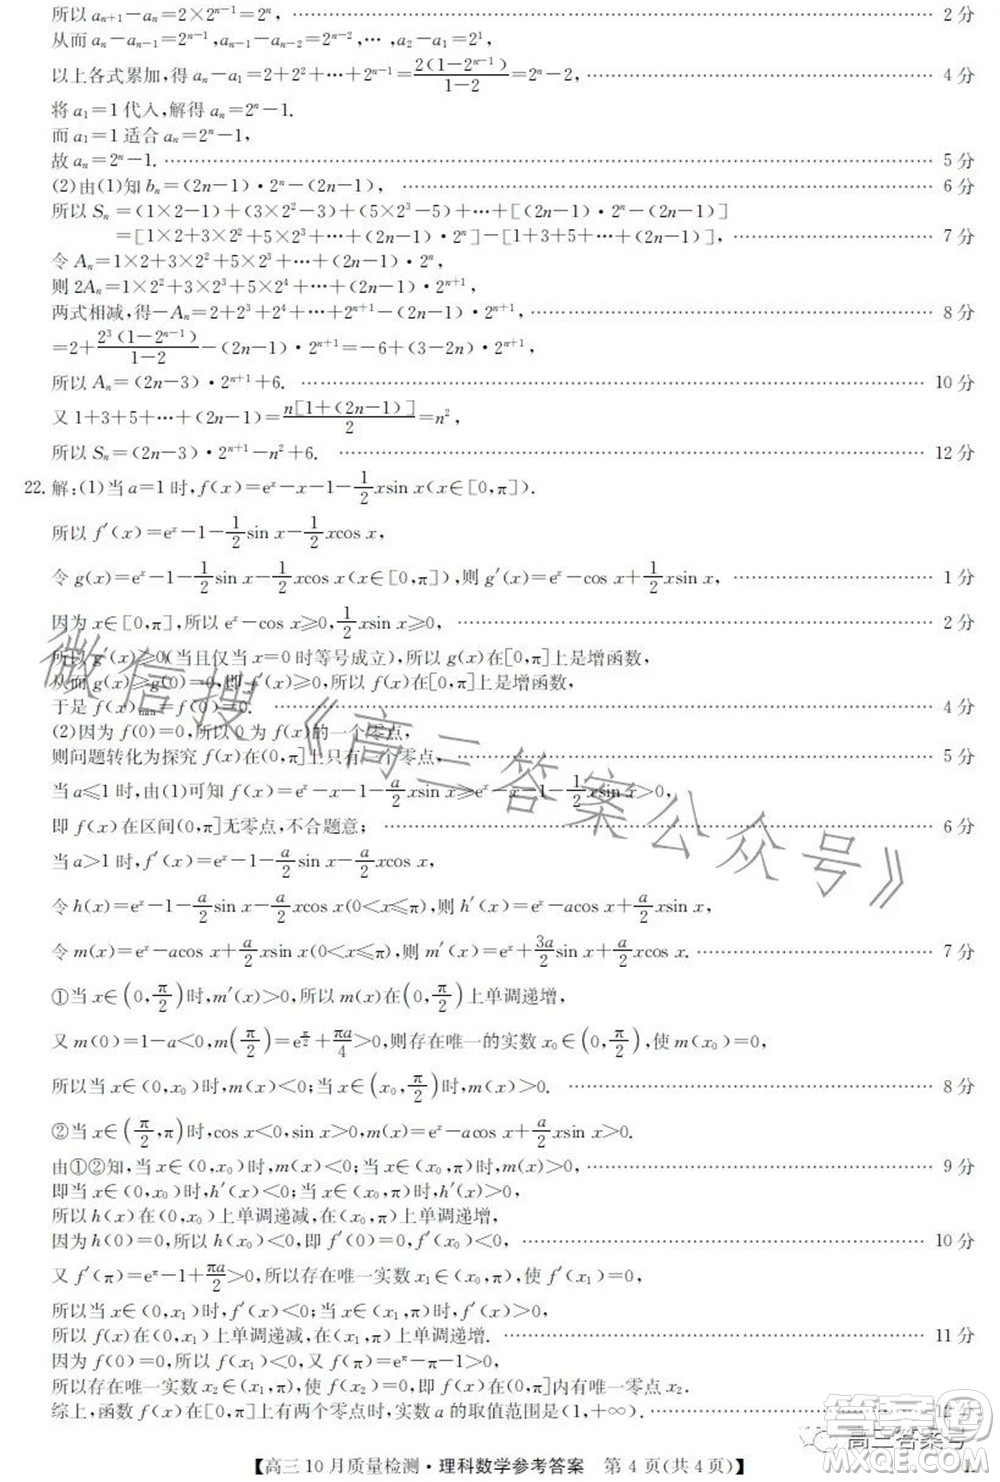 所以 aₙ₊₁－aₙ＝2×2ⁿ⁻¹＝2ⁿ，…… 2 分
从而 aₙ－aₙ₋₁＝2ⁿ⁻¹，aₙ₋₁－aₙ₋₂＝2ⁿ⁻²，…，a₂－a₁＝2¹，
以上各式累加，得 aₙ－a₁＝2＋2²＋…＋2ⁿ⁻¹＝2(1－2ⁿ⁻¹)/(1－2)＝2ⁿ－2，…… 4 分
将 a₁＝1 代入，解得 aₙ＝2ⁿ－1.
而 a₁＝1 适合 aₙ＝2ⁿ－1，
故 aₙ＝2ⁿ－1. …… 5 分
(2)由(1)知 bₙ＝(2n－1)·2ⁿ－(2n－1)，…… 6 分
所以 Sₙ＝(1×2－1)＋(3×2²－3)＋(5×2³－5)＋…＋[(2n－1)·2ⁿ－(2n－1)]
＝[1×2＋3×2²＋5×2³＋…＋(2n－1)·2ⁿ]－[1＋3＋5＋…＋(2n－1)]，…… 7 分
令 Aₙ＝1×2＋3×2²＋5×2³＋…＋(2n－1)·2ⁿ，
则 2Aₙ＝1×2²＋3×2³＋5×2⁴＋…＋(2n－1)·2ⁿ⁺¹，
两式相减，得－Aₙ＝2＋2³＋2⁴＋…＋2ⁿ⁺¹－(2n－1)·2ⁿ⁺¹ …… 8 分
＝2＋2³(1－2ⁿ⁻¹)/(1－2)－(2n－1)·2ⁿ⁺¹＝－6＋(3－2n)·2ⁿ⁺¹，
所以 Aₙ＝(2n－3)·2ⁿ⁺¹＋6. …… 10 分
又 1＋3＋5＋…＋(2n－1)＝n[1＋(2n－1)]/2＝n²，
所以 Sₙ＝(2n－3)·2ⁿ⁺¹－n²＋6. …… 12 分
22. 解：(1)当 a＝1 时，f(x)＝eˣ－x－1－1/2 xsin x(x∈[0，π]).
所以 f′(x)＝eˣ－1－1/2 sin x－1/2 xcos x，
令 g(x)＝eˣ－1－1/2 sin x－1/2 xcos x(x∈[0，π])，则 g′(x)＝eˣ－cos x＋1/2 xsin x，…… 1 分
因为 x∈[0，π]，所以 eˣ－cos x≥0，1/2 xsin x≥0，…… 2 分
所以 g′(x)≥0(当且仅当 x＝0 时等号成立)，所以 g(x)在[0，π]上是增函数，
从而 g(x)≥g(0)＝0，即 f′(x)≥0，所以 f(x)在[0，π]上是增函数，
于是 f(x)min＝f(0)＝0. …… 4 分
(2)因为 f(0)＝0，所以 0 为 f(x)的一个零点，
则问题转化为探究 f(x)在(0，π]上只有一个零点，…… 5 分
当 a≤1 时，由(1)可知 f(x)＝eˣ－x－1－a/2 xsin x≥eˣ－x－1－1/2 xsin x＞0，
即 f(x)在区间(0，π]无零点，不合题意；…… 6 分
当 a＞1 时，f′(x)＝eˣ－1－a/2 sin x－a/2 xcos x，
令 h(x)＝eˣ－1－a/2 sin x－a/2 xcos x(0＜x≤π)，则 h′(x)＝eˣ－acos x＋a/2 xsin x，
令 m(x)＝eˣ－acos x＋a/2 xsin x(0＜x≤π)，则 m′(x)＝eˣ＋3a/2 sin x＋a/2 xcos x. …… 7 分
①当 x∈(0，π/2)时，m′(x)＞0，所以 m(x)在(0，π/2)上单调递增，
又 m(0)＝1－a＜0，m(π/2)＝e^(π/2)＋πa/4＞0，则存在唯一的实数 x₀∈(0，π/2)，使 m(x₀)＝0，
所以当 x∈(0，x₀)时，m(x)＜0；当 x∈(x₀，π/2)时，m(x)＞0. …… 8 分
②当 x∈(π/2，π)时，cos x＜0，sin x＞0，m(x)＝eˣ－acos x＋a/2 xsin x＞0.
由①②知，当 x∈(0，x₀)时，m(x)＜0；当 x∈(x₀，π)时，m(x)＞0，…… 9 分
即当 x∈(0，x₀)时，h′(x)＜0；当 x∈(x₀，π)时，h′(x)＞0，
所以 h(x)在(0，x₀)上单调递减，在(x₀，π)上单调递增，
因为 h(0)＝0，所以 h(x₀)＜0，即 f′(0)＝0，f′(x₀)＜0，…… 10 分
又 f′(π)＝e^π－1＋πa/2＞0，所以存在唯一实数 x₁∈(x₀，π)，使 f′(x₁)＝0，
所以当 x∈(0，x₁)时，f′(x)＜0；当 x∈(x₁，π)时，f′(x)＞0，
所以 f(x)在(0，x₁)上单调递减，在(x₁，π)上单调递增. …… 11 分
因为 f(0)＝0，所以 f(x₁)＜0，又 f(π)＝e^π－π－1＞0，
所以存在唯一实数 x₂∈(x₁，π)，使 f(x₂)＝0，即 f(x)在(0，π]内有唯一零点 x₂.
综上，函数 f(x)在[0，π]上有两个零点时，实数 a 的取值范围是(1，＋∞). …… 12 分
【高三 10 月质量检测·理科数学参考答案 第 4 页(共 4 页)】
微信搜《高三答案公众号》
高三答案号
答案圈